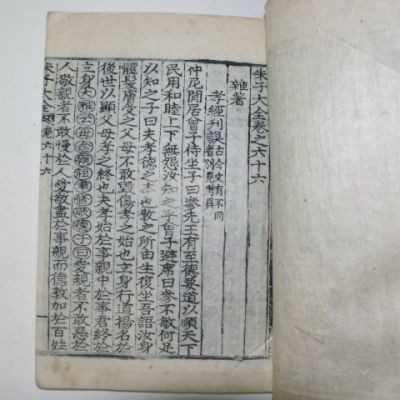 朱子大全卷之六十六
雜著
孝經刊誤 古今文有不同
者別見考異
仲尼閒居曾子侍坐子曰參先王有至德要道以順天下
民用和睦上下無怨汝知之乎曾子避席曰參不敏何足
以知之子曰夫孝德之本也教之所由生復坐吾語汝身
體髮膚受之父母不敢毀傷孝之始也立身行道揚名於
後世以顯父母孝之終也夫孝始於事親中於事君終於
立身大雅云毋念爾祖聿脩厥德子曰愛親者不敢惡於
人敬親者不敢慢於人愛敬盡於事親而德教加於百姓
朱子大全 卷六十六